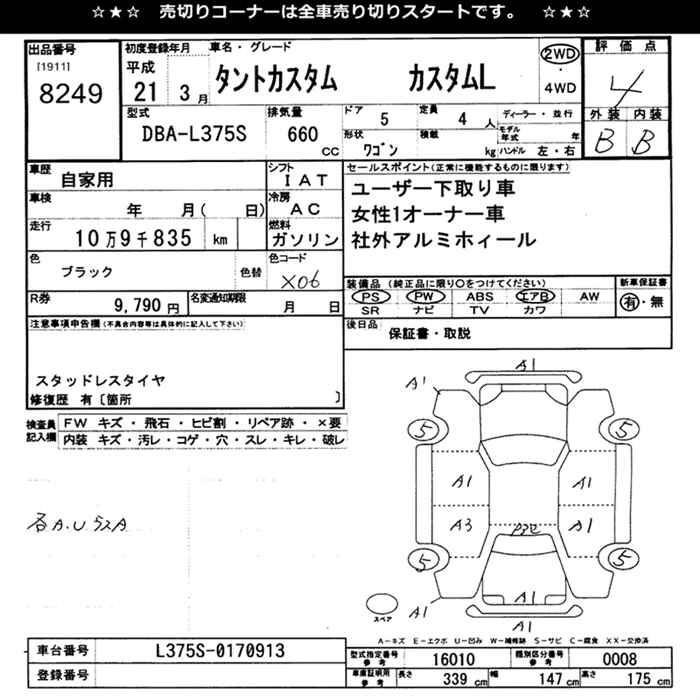 ☆★☆ 売切りコーナーは全車売り切りスタートです。 ☆★☆
出品番号
[1911]
8249
初度登録年月
平成
21 3月
車名・グレード
タントカスタム カスタムL
2WD
・
4WD
評価点
4
外装 内装
B B
型式
DBA-L375S
排気量
660
CC
ドア 5
定員 4 人
ディーラー・並行
モデル年式 年
形状 ワゴン
積載 kg
ハンドル 左・右
車歴
自家用
シフト
IAT
車検
年 月( 日)
冷房
AC
走行
10万9千835 km
燃料
ガソリン
色
ブラック
色替
色コード
X06
R券
9,790 円
名変通知期限
月 日
セールスポイント(正常に機能するものに限ります)
ユーザー下取り車
女性1オーナー車
社外アルミホィール
装備品 (純正品に限り○をつけてください)
PS PW ABS エアB AW
SR ナビ TV カワ
新車保証書
有・無
後日品
保証書・取説
注意事項申告欄(不具合内容等は具体的に記入して下さい)
スタッドレスタイヤ
修復歴 有〔箇所 〕
検査員記入欄
FW キズ・飛石・ヒビ割・リペア跡・×要
内装 キズ・汚レ・コゲ・穴・スレ・キレ・破レ
各A.U
A1
A1
5 5
A1 A1
A3 A1
5 5
A1
A1
スペア
A-キズ E-エクボ U-凹み W-補修跡 S-サビ C-腐食 XX-交換済
車台番号
L375S-0170913
登録番号
型式指定番号
参考
16010
類別区分番号
参考
0008
車庫証明用
参考
長さ 339 cm
幅 147 cm
高さ 175 cm